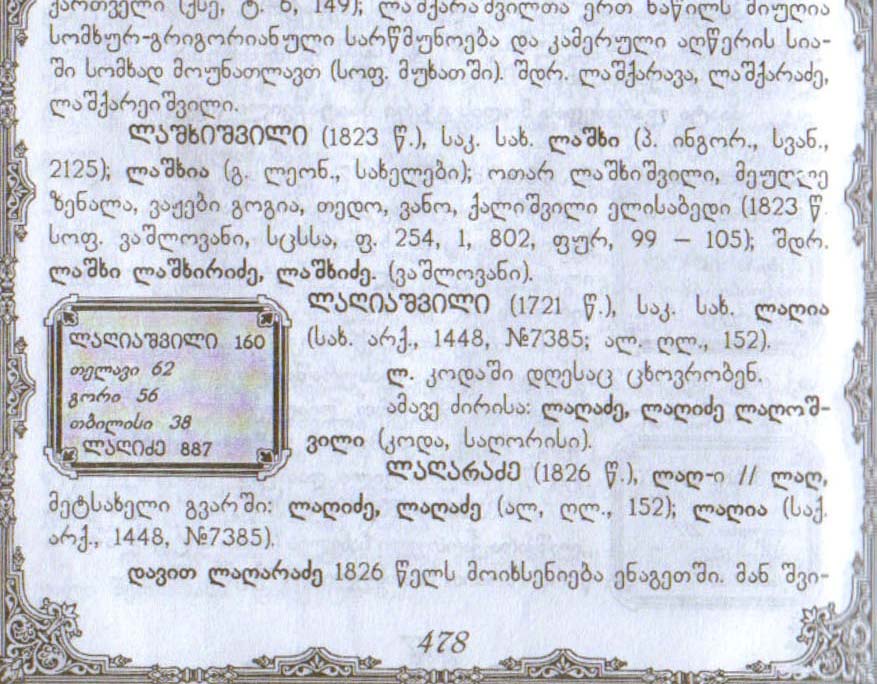 ქართველი (ქსე, ტ. 6, 149); ლაშქარაშვილთა ერთ ნაწილს მიუღია
სომხურ-გრიგორიანული სარწმუნოება და კამერული აღწერის სია-
ში სომხად მოუნათლავთ (სოფ. მუხათში). შდრ. ლაშქარავა, ლაშქარაძე,
ლაშქარეიშვილი.
ლაშხიშვილი (1823 წ.), საკ. სახ. ლაშხი (პ. ინგორ., სვან.,
2125); ლაშხია (გ. ლეონ., სახელები); ოთარ ლაშხიშვილი, მეუღლე
ზენალა, ვაჟები გოგია, თედო, ვანო, ქალიშვილი ელისაბედი (1823 წ.
სოფ. ვაშლოვანი, სცსსა, ფ. 254, 1, 802, ფურ, 99 – 105); შდრ.
ლაშხი ლაშხირიძე, ლაშხიძე. (ვაშლოვანი).
ლაღიაშვილი (1721 წ.), საკ. სახ. ლაღია
(სახ. არქ., 1448, №7385; ალ. ღლ., 152).
ლ. კოდაში დღესაც ცხოვრობენ.
ამავე ძირისა: ლაღაძე, ლაღიძე ლაღოშ-
ვილი (კოდა, საღორისი).
ლაღიაშვილი 160
თელავი 62
გორი 56
თბილისი 38
ლაღიძე 887
ლაღარაძე (1826 წ.), ლაღ-ი // ლაღ,
მეტსახელი გვარში: ლაღიძე, ლაღაძე (ალ, ღლ., 152); ლაღია (საქ.
არქ., 1448, №7385).
დავით ლაღარაძე 1826 წელს მოიხსენიება ენაგეთში. მან შვი-
478